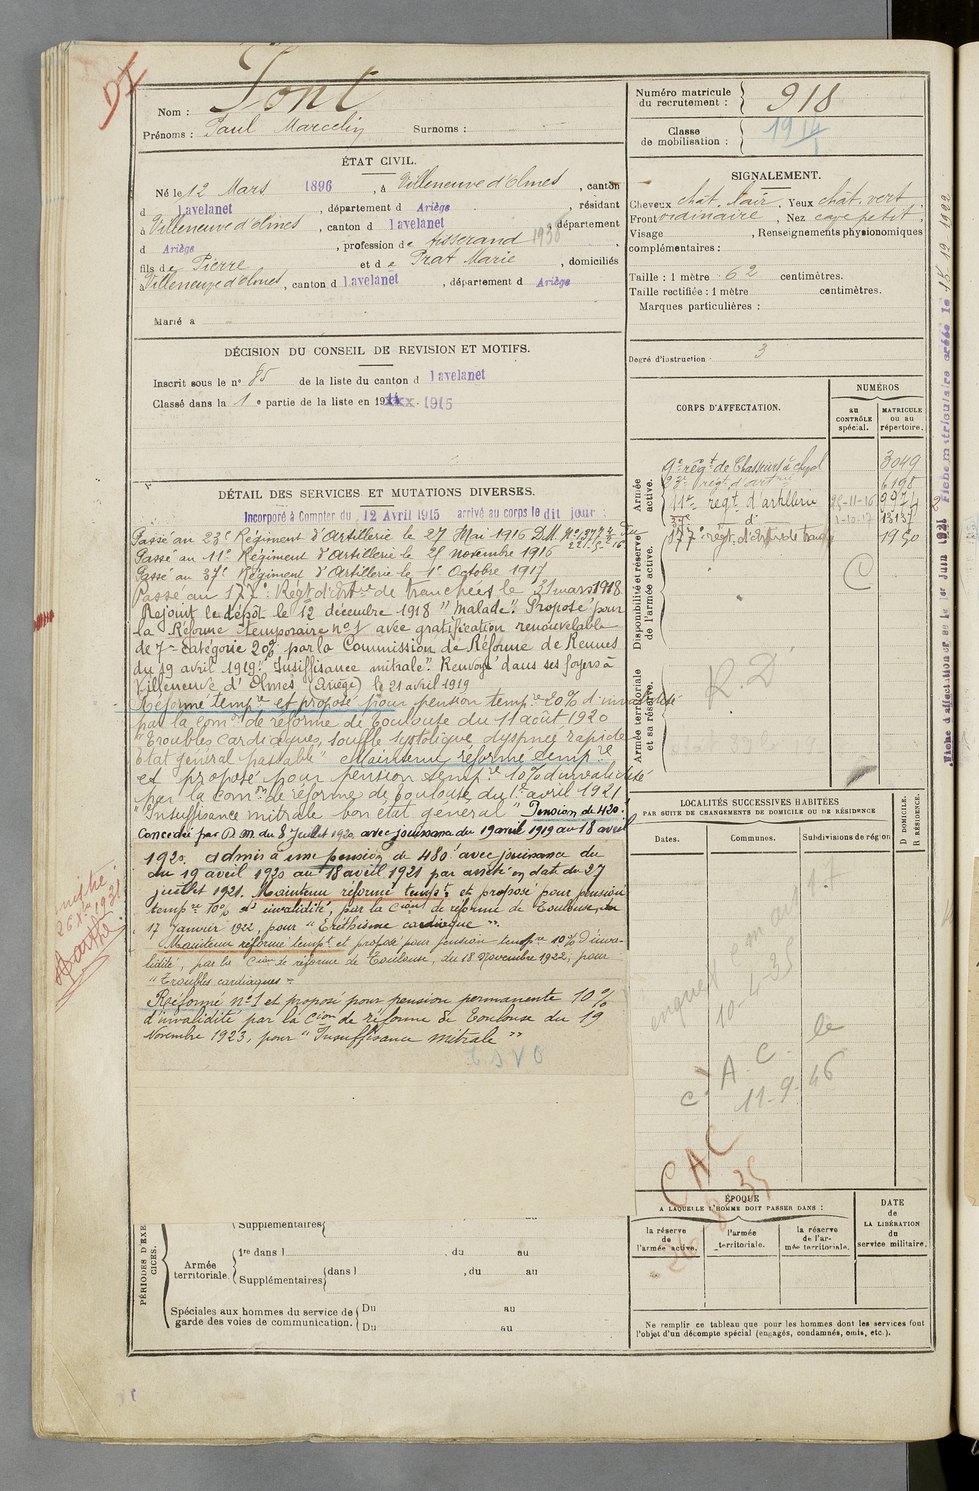 DI
Nom : Font
Prénoms : Paul Marcelin Surnoms :
ÉTAT CIVIL.
Né le 12 Mars 1896, à Villeneuve d'Olmes, canton
d Lavelanet, département d Ariège, résidant
à Villeneuve d'Olmes, canton d Lavelanet département
d Ariège, profession de tisserand 1936
fils de Pierre et de Prat Marie, domiciliés
à Villeneuve d'Olmes, canton d Lavelanet, département d Ariège
Marié à
DÉCISION DU CONSEIL DE REVISION ET MOTIFS.
Inscrit sous le n° 85 de la liste du canton d Lavelanet
Classé dans la 1e partie de la liste en 1915
DÉTAIL DES SERVICES ET MUTATIONS DIVERSES.
Incorporé à Compter du 12 Avril 1915 arrivé au corps le dit jour :
Passé au 23e Régiment d'Artillerie le 27 Mai 1916 D.M. N°
Passé au 11e Régiment d'Artillerie le 25 novembre 1916
Passé au 37e Régiment d'Artillerie le 1er Octobre 1917
Passé au 177e Régt d'Artie de tranchées le 31 mars 1918
Rejoint le dépôt le 12 décembre 1918 "malade". Proposé pour
la Réforme temporaire n°1 avec gratification renouvelable
de 7e catégorie 20% par la Commission de Réforme de Rennes
du 19 avril 1919 "Insuffisance mitrale". Renvoyé dans ses foyers à
Villeneuve d'Olmes (Ariège) le 21 avril 1919
Réformé tempre et proposé pour pension tempre 20% d'invalidité
par la comon de réforme de Toulouse du 11 août 1920
"Troubles cardiaques, souffle systolique, dyspnée rapide
Etat général passable" Maintenu réformé tempre
et proposé pour pension tempre 10% d'invalidité
par la comon de réforme de Toulouse du 1er avril 1921
"Insuffisance mitrale bon état général" Pension de 420.
Concédée par D.M. du 8 Juillet 1920 avec jouissance du 19 avril 1919 au 18 avril
1920. admis à une pension de 480f avec jouissance du
du 19 avril 1920 au 18 avril 1921 par arrêté en date du 27
juillet 1921. Maintenu réformé tempre et proposé pour pension
tempre 10% d'invalidité, par la Cion de réforme de Toulouse, du
17 Janvier 1922, pour "Eréthisme cardiaque".
Maintenu réformé tempre et proposé pour pension tempre 10% d'inva-
lidité, par la Cion de réforme de Toulouse, du 18 Novembre 1922, pour
"Troubles cardiaques"
Réformé n°1 et proposé pour pension permanente 10%
d'invalidité par la Cion de réforme de Toulouse du 19
Novembre 1923, pour "Insuffisance mitrale"
Supplémentaires
PÉRIODES D'EXERCICES.
Armée territoriale.
1re dans l , du au
Supplémentaires dans l , du au
Spéciales aux hommes du service de garde des voies de communication.
Du au
Du au
Numéro matricule du recrutement : 918
Classe de mobilisation : 1914
SIGNALEMENT.
Cheveux chât. clair, Yeux chât. vert,
Front ordinaire, Nez cave petit,
Visage , Renseignements physionomiques
complémentaires :
Taille : 1 mètre 62 centimètres.
Taille rectifiée : 1 mètre centimètres.
Marques particulières :
Degré d'instruction 3
CORPS D'AFFECTATION.
NUMÉROS
au CONTRÔLE spécial.
MATRICULE ou au répertoire.
Armée active.
9e régt de Chasseurs à cheval 3049
23e régt d'artie 6198
11e régt d'artillerie 25-11-16 9974
37e d° 1-10-17 13137
177e régt d'Artie de tranchées 1950
Disponibilité et réserve de l'armée active.
C
Armée territoriale et sa réserve.
R.D
LOCALITÉS SUCCESSIVES HABITÉES
PAR SUITE DE CHANGEMENTS DE DOMICILE OU DE RÉSIDENCE
Dates. Communes. Subdivisions de région
D DOMICILE. R RÉSIDENCE.
10-4-35
C.A.C. le
11-9-46
CAC
ÉPOQUE
A LAQUELLE L'HOMME DOIT PASSER DANS :
la réserve de l'armée active.
l'armée territoriale.
la réserve de l'armée territoriale.
DATE de LA LIBÉRATION du service militaire.
Ne remplir ce tableau que pour les hommes dont les services font
l'objet d'un décompte spécial (engagés, condamnés, omis, etc.).
Fiche matriculaire créée le 15 12 1922
Fiche d'affectation créée le 1er Juin 1921